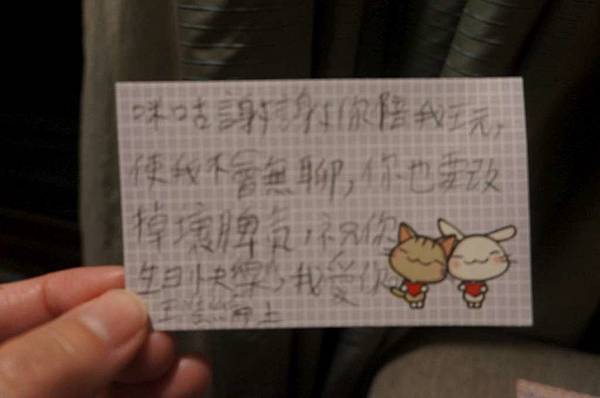 咪咕謝謝你陪我玩,
使我不會無聊,你也要改
掉壞脾氣,祝你
生日快樂,我愛你
王 上